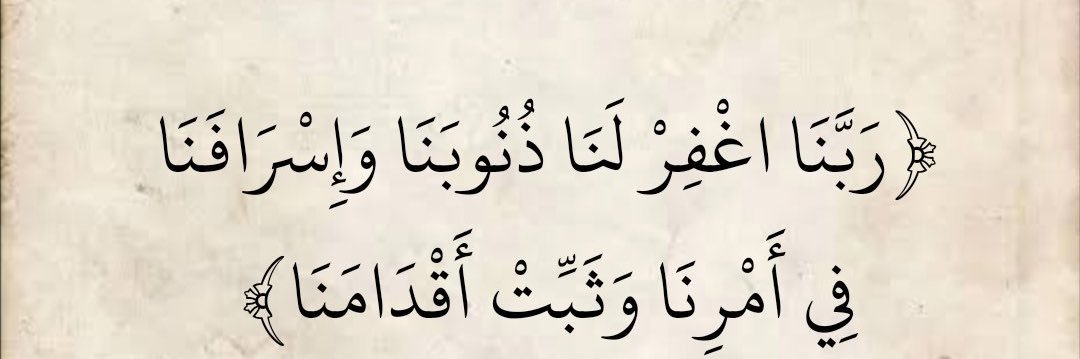 ﴿رَبَّنَا اغْفِرْ لَنَا ذُنُوبَنَا وَإِسْرَافَنَا
فِي أَمْرِنَا وَثَبِّتْ أَقْدَامَنَا﴾